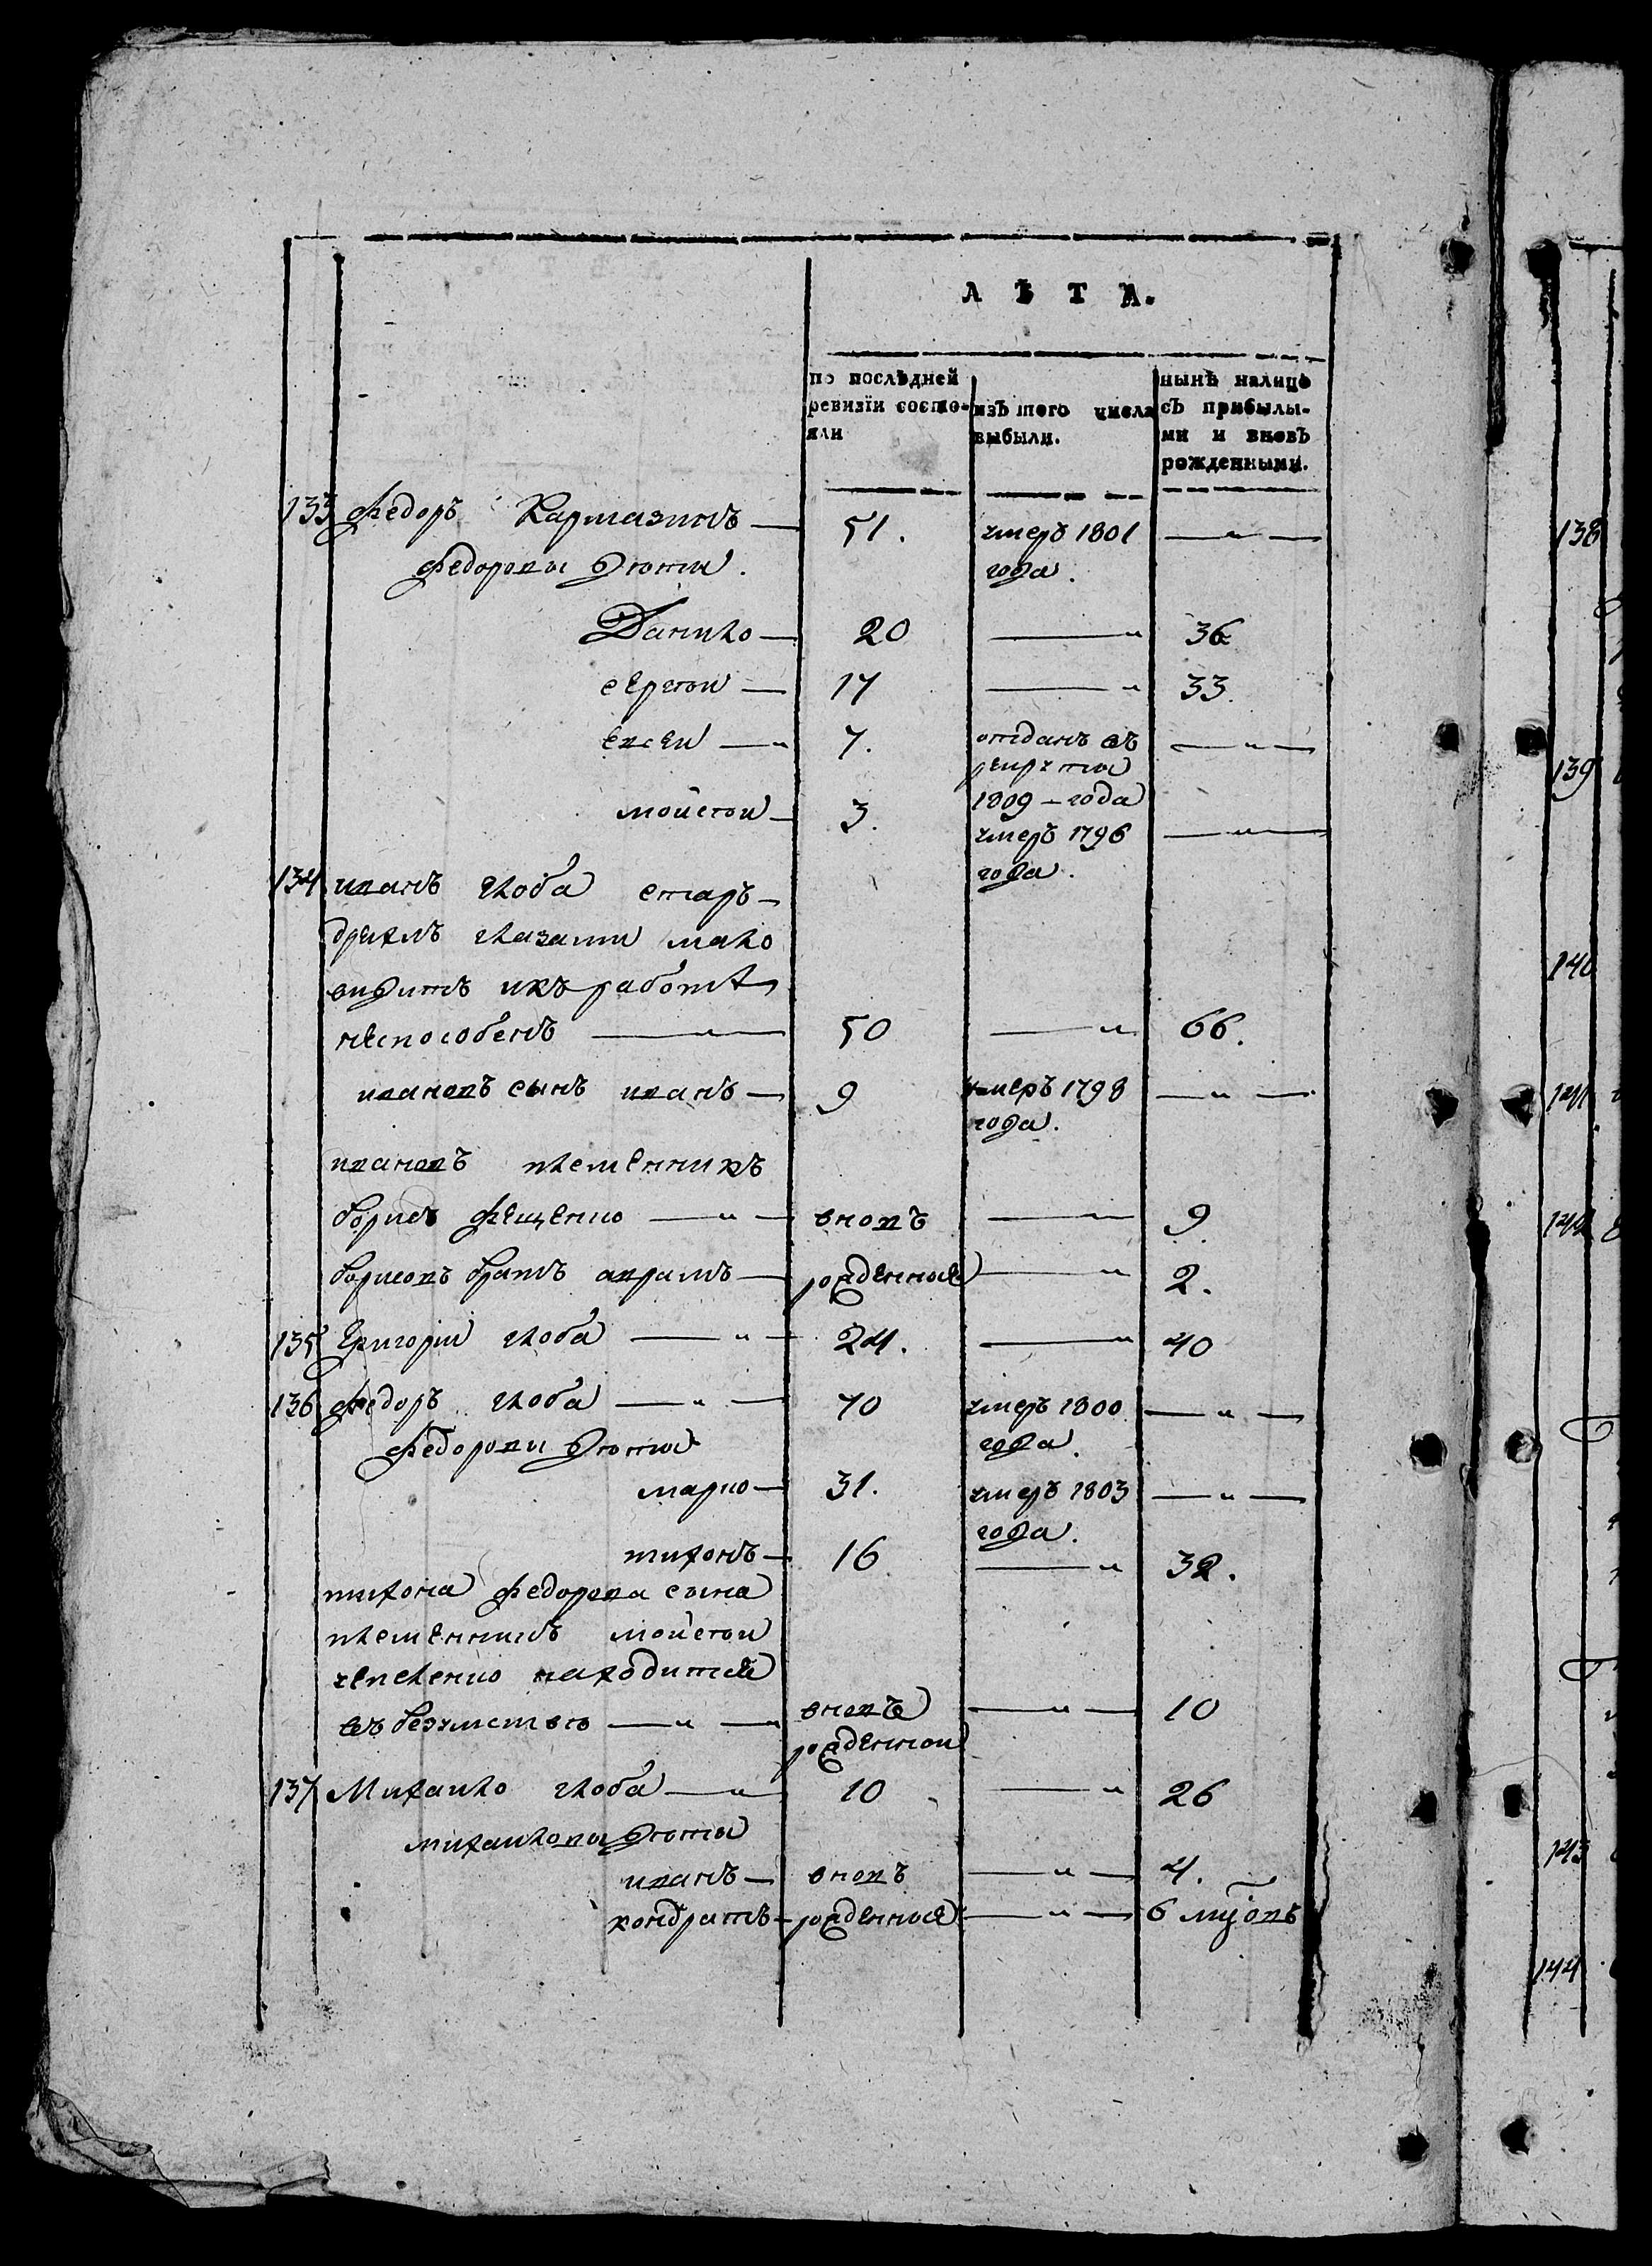 ЛѢТА.
по послѣдней
ревизіи состо-
яли
изъ того числа
выбыли.
нынѣ налице
съ прибылы-
ми и вновь
рожденными.
133 Федоръ Кармазинъ — 51. умеръ 1801 — " —
года.
Федоровы дѣти.
Данило — 20 — " 36
сергѣи — 17 — " 33.
евсеи — " 7. отданъ въ — " —
рекруты
1809 — года
мойсеи — 3. умеръ 1796 — " —
года.
134 иванъ глоба старъ —
дряхлъ глазами мало
видитъ и къ работѣ
неспособенъ — " — 50 — " 66.
ивановъ сынъ иванъ — 9 умеръ 1798 — " —
года.
ивановъ племенникъ
борисъ фещенко — " — вновь — " 9
борисовъ братъ аврамъ — рожденные — " 2.
135 Григоріи глоба — " — 24. — " 40
136 Федоръ глоба — " — 70 умеръ 1800 — " —
года.
Федоровы дѣти
марко — 31. умеръ 1803 — " —
года.
тихонъ — 16 — " 32.
тихона федорова сына
племенникъ мойсеи
находится
въ безумствѣ — " — вновь — " — 10
рожденнои
137 Михаило глоба — " 10 — " 26
михаиловы дѣти
иванъ — вновь — " — 4.
кондратъ — рожденные — " — 6 мцовъ
138
139
140
141
142
143
144